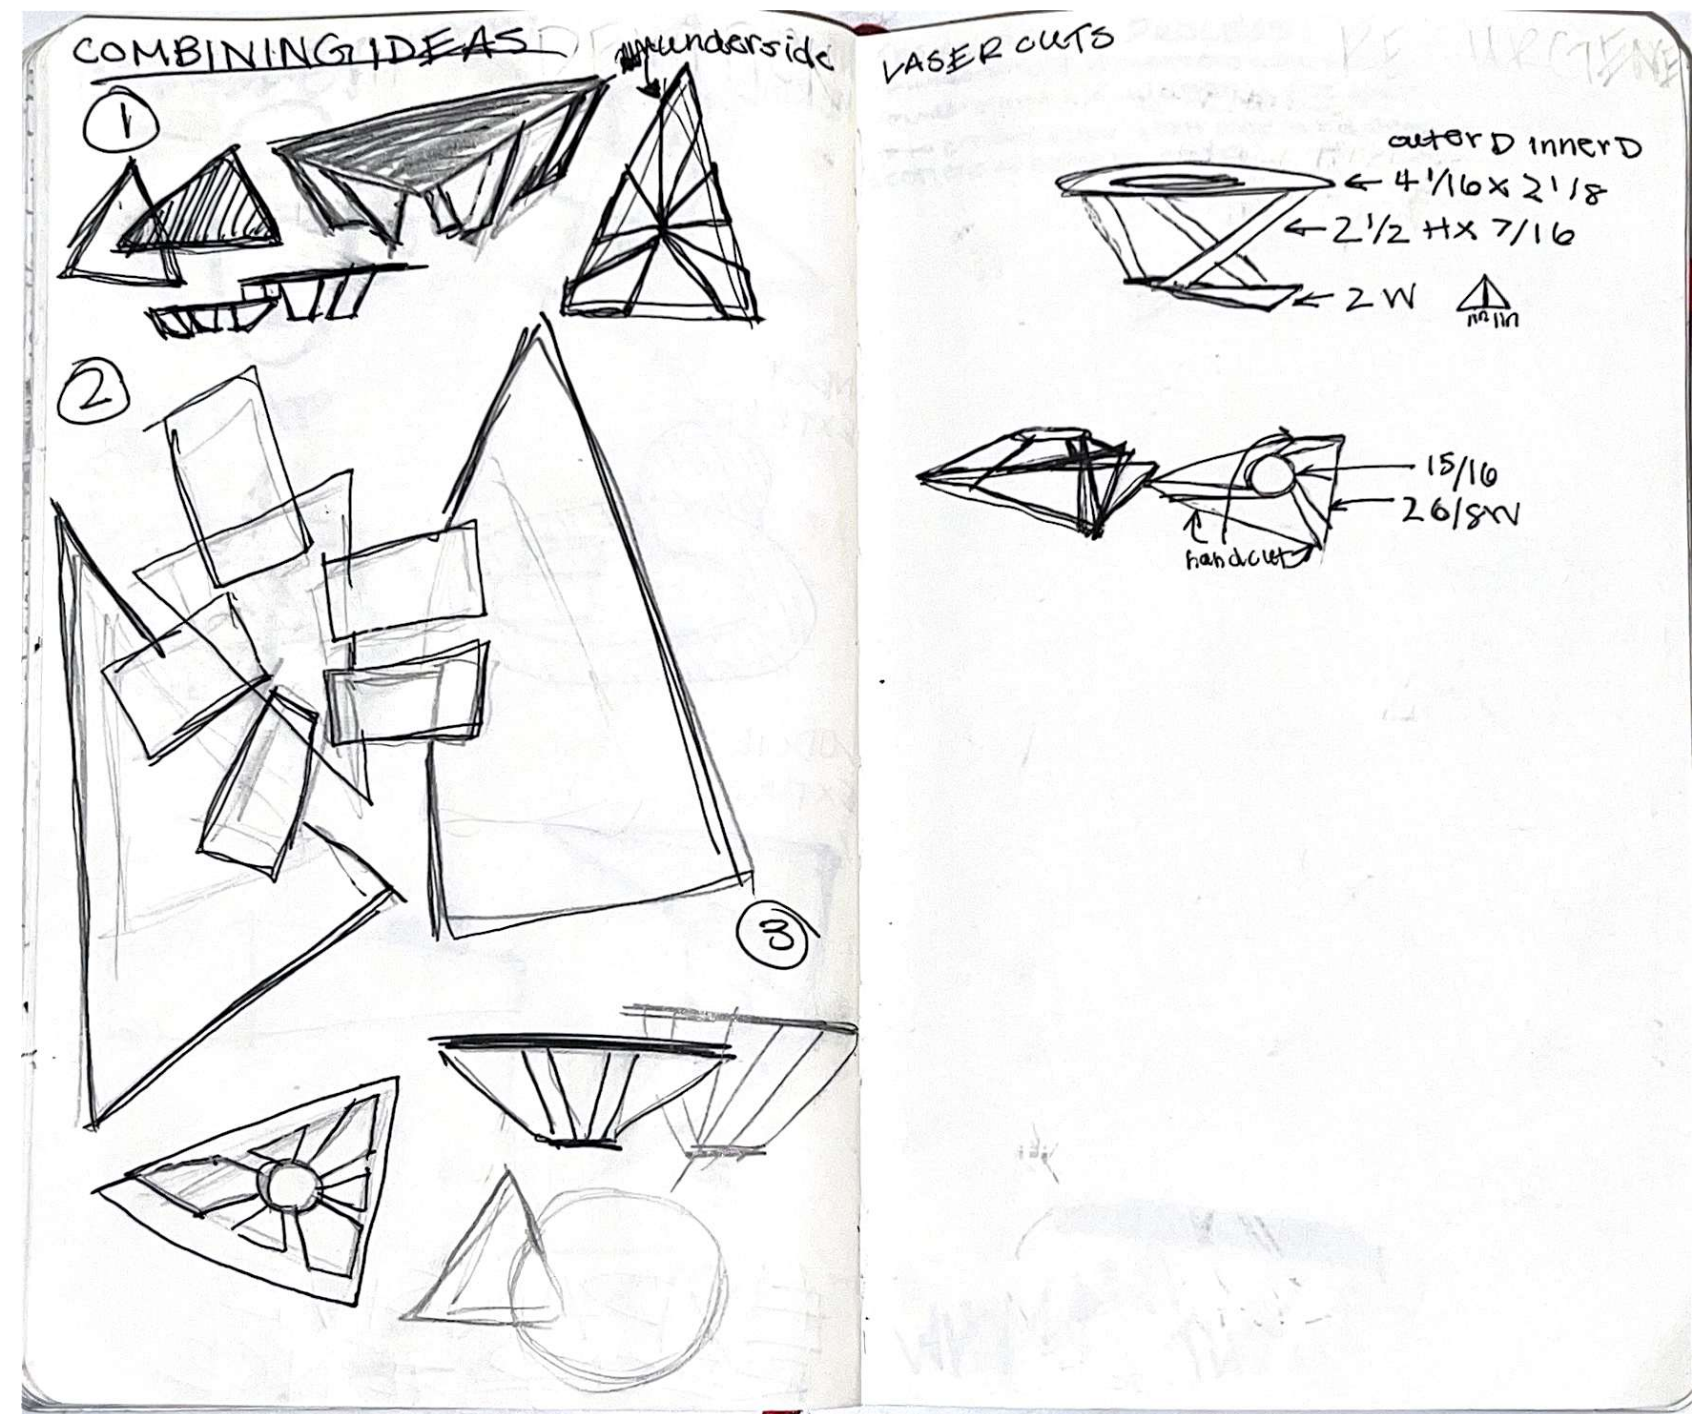 COMBINING IDEAS
underside
1
2
3
LASER CUTS
outer D inner D
4 1/16 X 2 1/8
2 1/2 H X 7/16
2 W
15/16
2 6/8 W
handcut